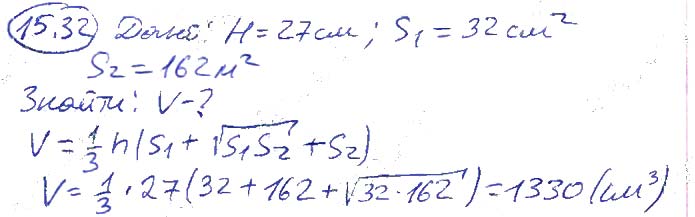 15.32 Дано: H = 27 см; S₁ = 32 см²
S₂ = 162 м²
Знайти: V - ?
V = 1/3 h (S₁ + √S₁S₂ + S₂)
V = 1/3 · 27 (32 + 162 + √32·162) = 1330 (см³)